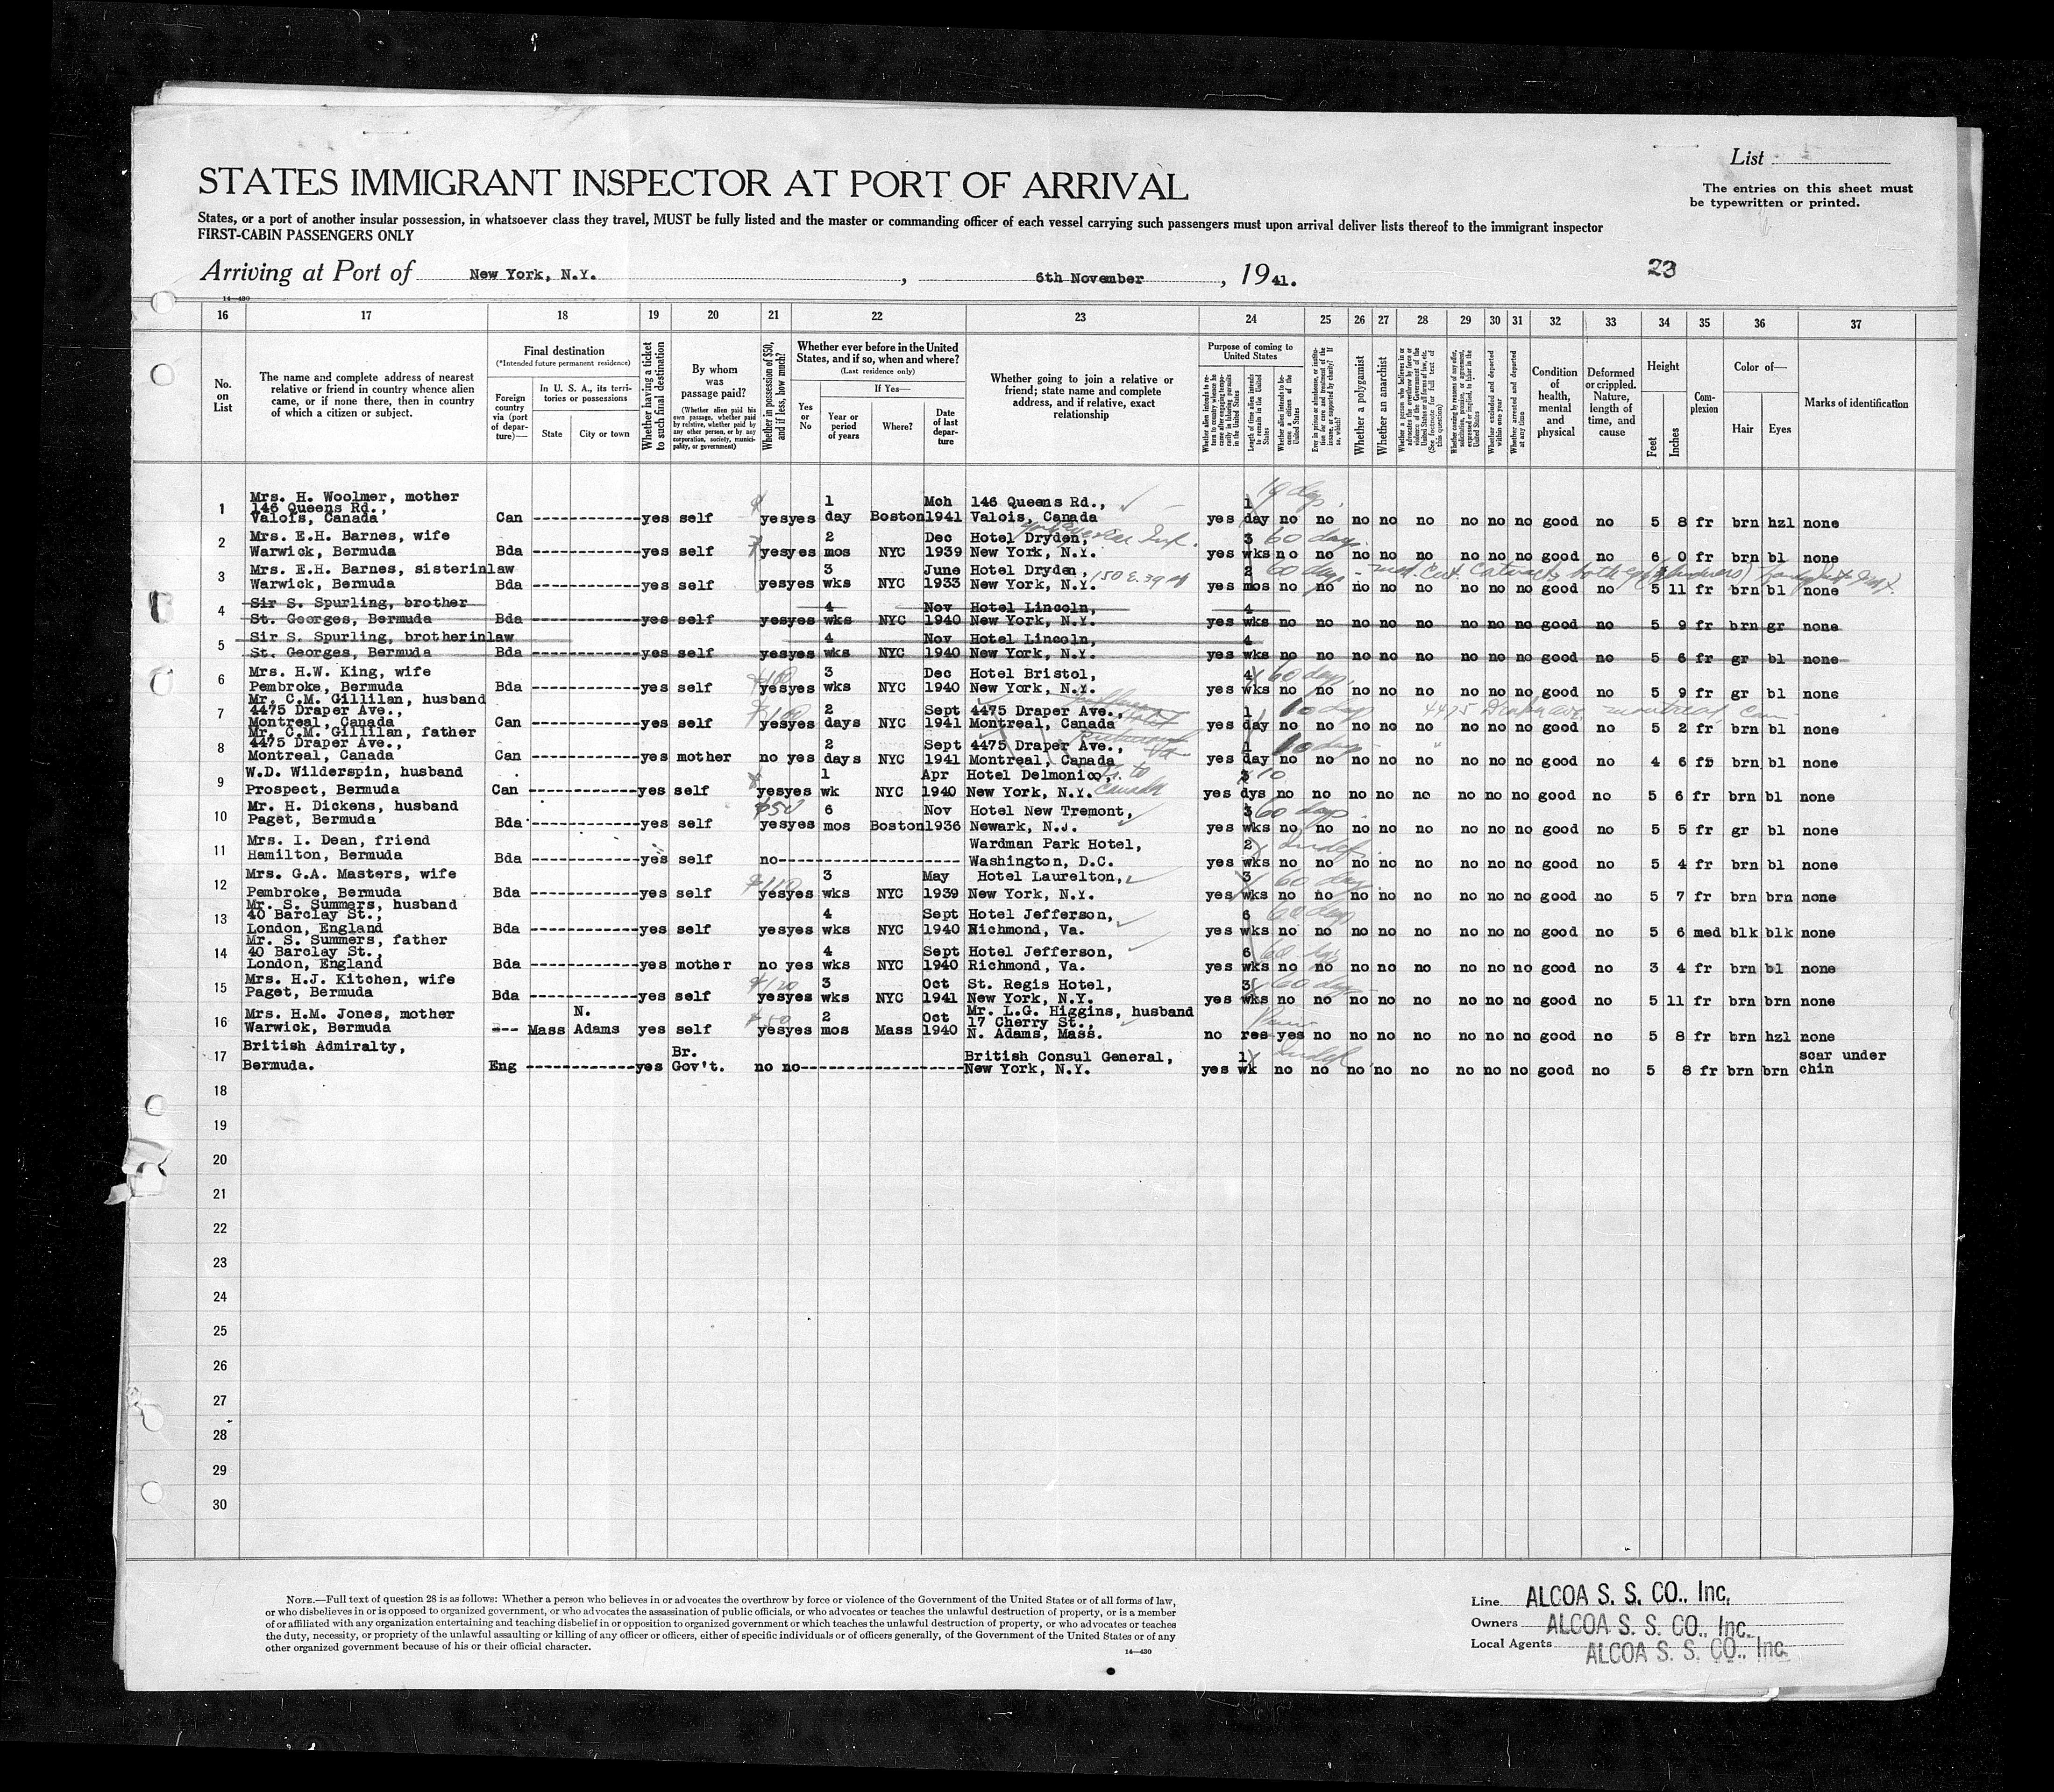 List
STATES IMMIGRANT INSPECTOR AT PORT OF ARRIVAL
The entries on this sheet must
be typewritten or printed.
States, or a port of another insular possession, in whatsoever class they travel, MUST be fully listed and the master or commanding officer of each vessel carrying such passengers must upon arrival deliver lists thereof to the immigrant inspector
FIRST-CABIN PASSENGERS ONLY
Arriving at Port of New York, N.Y. , 6th November , 1941.
23
14—430
16 17 18 19 20 21 22 23 24 25 26 27 28 29 30 31 32 33 34 35 36 37
No. on List
The name and complete address of nearest relative or friend in country whence alien came, or if none there, then in country of which a citizen or subject.
Final destination
(*Intended future permanent residence)
Foreign country via (port of departure)—
In U. S. A., its territories or possessions
State City or town
Whether having a ticket to such final destination
By whom was passage paid?
(Whether alien paid his own passage, whether paid by relative, whether paid by any other person, or by any corporation, society, municipality, or government)
Whether in possession of $50, and if less, how much?
Whether ever before in the United States, and if so, when and where?
(Last residence only)
If Yes—
Yes or No
Year or period of years
Where?
Date of last departure
Whether going to join a relative or friend; state name and complete address, and if relative, exact relationship
Purpose of coming to United States
Whether alien intends to return to country whence he came after engaging temporarily in laboring pursuits in the United States
Length of time alien intends to remain in the United States
Whether alien intends to become a citizen of the United States
Ever in prison or almshouse, or institution for care and treatment of the insane, or supported by charity? If so, which?
Whether a polygamist
Whether an anarchist
Whether a person who believes in or advocates the overthrow by force or violence of the Government of the United States or all forms of law, etc. (See footnote for full text of this question)
Whether coming by reasons of any offer, solicitation, promise, or agreement, expressed or implied, to labor in the United States
Whether excluded and deported within one year
Whether arrested and deported at any time
Condition of health, mental and physical
Deformed or crippled. Nature, length of time, and cause
Height
Feet Inches
Complexion
Color of—
Hair Eyes
Marks of identification
1 Mrs. H. Woolmer, mother 146 Queens Rd., Valois, Canada Can yes self yes yes 1 day Boston Mch 1941 146 Queens Rd., Valois, Canada yes 1 day no no no no no no no no good no 5 8 fr brn hzl none
2 Mrs. E.H. Barnes, wife Warwick, Bermuda Bda yes self yes yes 2 mos NYC Dec 1939 Hotel Dryden, New York, N.Y. yes 3 wks no no no no no no no no good no 6 0 fr brn bl none
60 days
3 Mrs. E.H. Barnes, sisterinlaw Warwick, Bermuda Bda yes self yes yes 3 wks NYC June 1933 Hotel Dryden, New York, N.Y. 150 E. 39 yes 2 mos no no no no no no no no good no 5 11 fr brn bl none
60 days - med. Cert. Cataracts both eyes
4 Sir S. Spurling, brother St. Georges, Bermuda Bda yes self yes yes 4 wks NYC Nov 1940 Hotel Lincoln, New York, N.Y. yes 4 wks no no no no no no no no good no 5 9 fr brn gr none
5 Sir S. Spurling, brotherinlaw St. Georges, Bermuda Bda yes self yes yes 4 wks NYC Nov 1940 Hotel Lincoln, New York, N.Y. yes 4 wks no no no no no no no no good no 5 6 fr gr bl none
6 Mrs. H.W. King, wife Pembroke, Bermuda Bda yes self $100 yes yes 3 wks NYC Dec 1940 Hotel Bristol, New York, N.Y. yes 4 wks no no no no no no no no good no 5 9 fr gr bl none
60 days
7 Mr. C.M. Gillilan, husband 4475 Draper Ave., Montreal, Canada Can yes self yes yes 2 days NYC Sept 1941 4475 Draper Ave., Montreal, Canada yes 1 day no no no no no no no no good no 5 2 fr brn bl none
10 days 4475 Draper Ave. Montreal, Can
8 Mr. C.M. Gillilan, father 4475 Draper Ave., Montreal, Canada Can yes mother no yes 2 days NYC Sept 1941 4475 Draper Ave., Montreal, Canada yes 1 day no no no no no no no no good no 4 6 fr brn bl none
10 days
9 W.D. Wilderspin, husband Prospect, Bermuda Can yes self yes yes 1 wk NYC Apr 1940 Hotel Delmonico, New York, N.Y. to Canada yes dys no no no no no no no no good no 5 6 fr brn bl none
10
10 Mr. H. Dickens, husband Paget, Bermuda Bda yes self $50 yes yes 6 mos Boston Nov 1936 Hotel New Tremont, Newark, N.J. yes 3 wks no no no no no no no no good no 5 5 fr gr bl none
60 days
11 Mrs. I. Dean, friend Hamilton, Bermuda Bda yes self no Wardman Park Hotel, Washington, D.C. yes 2 wks no no no no no no no no good no 5 4 fr brn bl none
Indef.
12 Mrs. G.A. Masters, wife Pembroke, Bermuda Bda yes self $110 yes yes 3 wks NYC May 1939 Hotel Laurelton, New York, N.Y. yes 3 wks no no no no no no no no good no 5 7 fr brn brn none
60 days
13 Mr. S. Summers, husband 40 Barclay St., London, England Bda yes self yes yes 4 wks NYC Sept 1940 Hotel Jefferson, Richmond, Va. yes 6 wks no no no no no no no no good no 5 6 med blk blk none
60 days
14 Mr. S. Summers, father 40 Barclay St., London, England Bda yes mother no yes 4 wks NYC Sept 1940 Hotel Jefferson, Richmond, Va. yes 6 wks no no no no no no no no good no 3 4 fr brn bl none
60 days
15 Mrs. H.J. Kitchen, wife Paget, Bermuda Bda yes self $120 yes yes 3 wks NYC Oct 1941 St. Regis Hotel, New York, N.Y. yes 3 wks no no no no no no no no good no 5 11 fr brn brn none
60 days
16 Mrs. H.M. Jones, mother Warwick, Bermuda --- Mass N. Adams yes self yes yes 2 mos Mass Oct 1940 Mr. L.G. Higgins, husband 17 Cherry St., N. Adams, Mass. no res yes no no no no no no no good no 5 8 fr brn hzl none
17 British Admiralty, Bermuda. Eng yes Br. Gov't. no no British Consul General, New York, N.Y. yes 1 wk no no no no no no no no good no 5 8 fr brn brn scar under chin
Indef
18
19
20
21
22
23
24
25
26
27
28
29
30
NOTE.—Full text of question 28 is as follows: Whether a person who believes in or advocates the overthrow by force or violence of the Government of the United States or of all forms of law,
or who disbelieves in or is opposed to organized government, or who advocates the assassination of public officials, or who advocates or teaches the unlawful destruction of property, or is a member
of or affiliated with any organization entertaining and teaching disbelief in or opposition to organized government or which teaches the unlawful destruction of property, or who advocates or teaches
the duty, necessity, or propriety of the unlawful assaulting or killing of any officer or officers, either of specific individuals or of officers generally, of the Government of the United States or of any
other organized government because of his or their official character.
14—430
Line ALCOA S. S. CO., Inc.
Owners ALCOA S. S. CO., Inc.
Local Agents ALCOA S. S. CO., Inc.